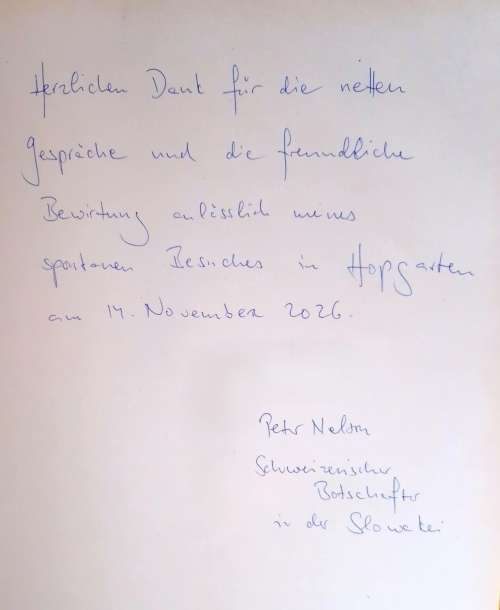 Herzlichen Dank für die netten
Gespräche und die freundliche
Bewirtung anlässlich meines
spontanen Besuches in Hopgarten
am 14. November 2026.
Peter Nelson
Schweizerischer
Botschafter
in der Slowakei